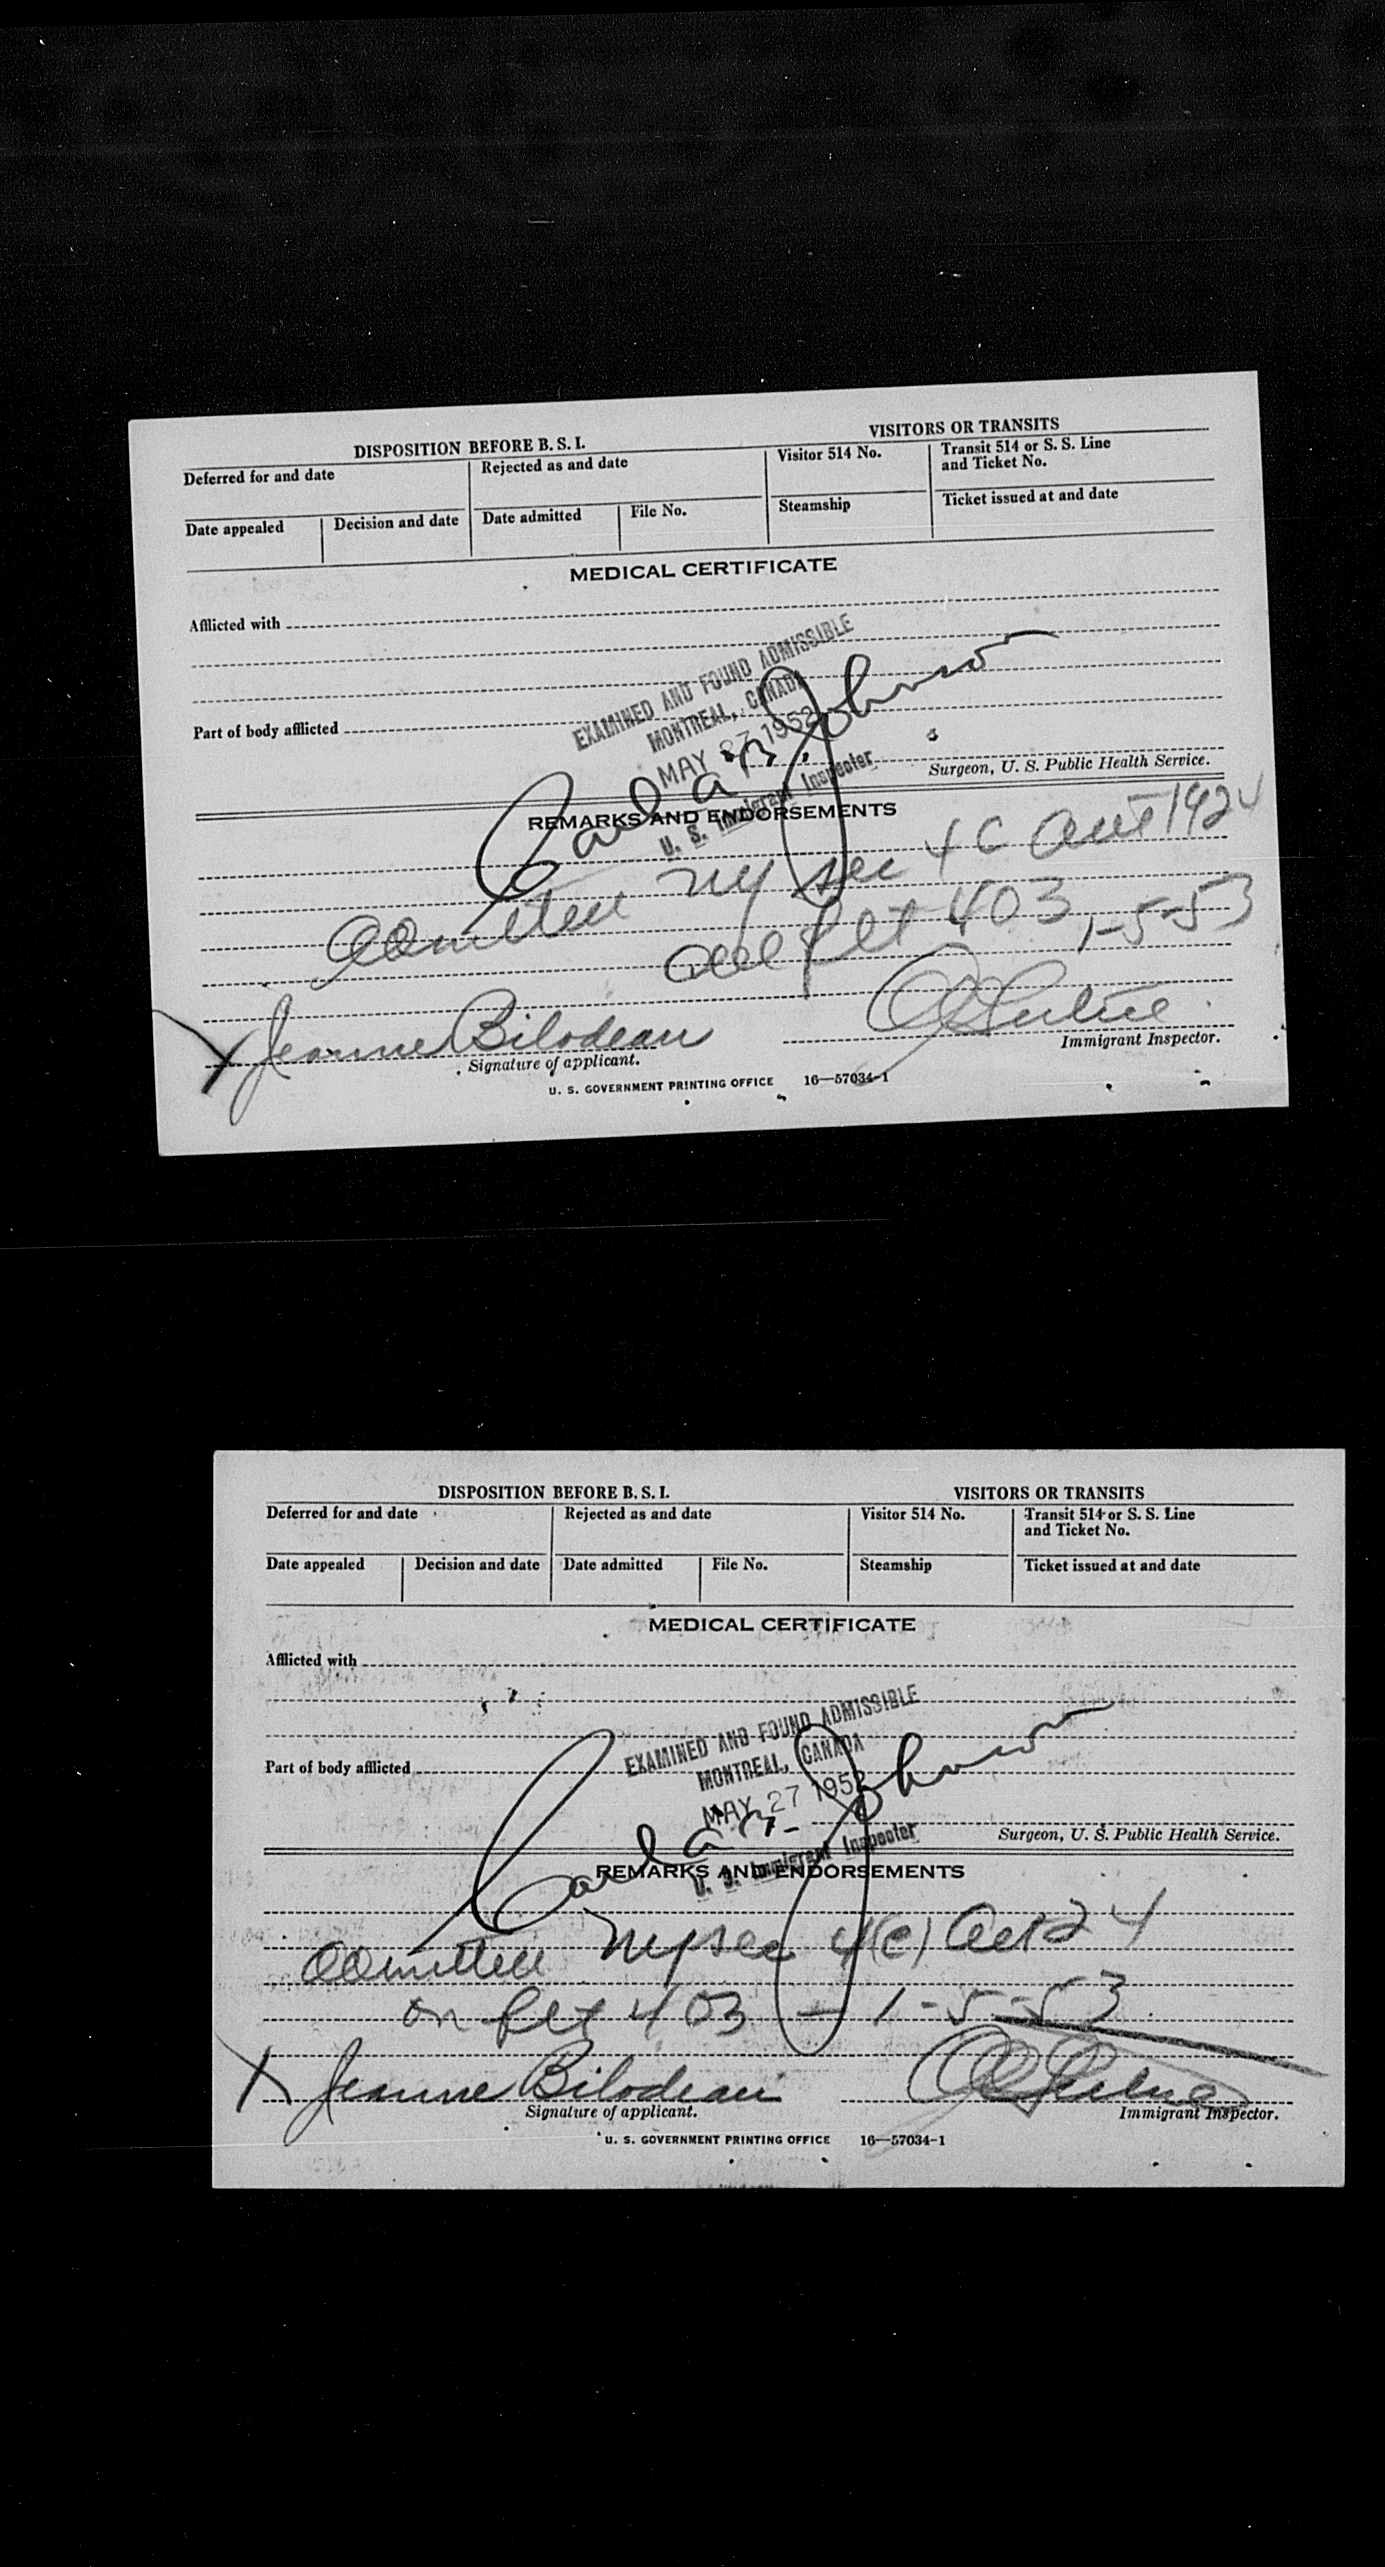 DISPOSITION BEFORE B. S. I.
VISITORS OR TRANSITS
Deferred for and date
Rejected as and date
Visitor 514 No.
Transit 514 or S. S. Line
and Ticket No.
Date appealed
Decision and date
Date admitted
File No.
Steamship
Ticket issued at and date
MEDICAL CERTIFICATE
Afflicted with
Part of body afflicted
EXAMINED AND FOUND ADMISSIBLE
MONTREAL, CANADA
MAY 27 1952
U. S. Immigrant Inspector
Johnson
Surgeon, U. S. Public Health Service.
REMARKS AND ENDORSEMENTS
admitted NY sec 4C Act 1924
flt 403 1-5-53
X Jeanne Bilodeau
Signature of applicant.
Immigrant Inspector.
U. S. GOVERNMENT PRINTING OFFICE 16—57034-1
DISPOSITION BEFORE B. S. I.
VISITORS OR TRANSITS
Deferred for and date
Rejected as and date
Visitor 514 No.
Transit 514 or S. S. Line
and Ticket No.
Date appealed
Decision and date
Date admitted
File No.
Steamship
Ticket issued at and date
MEDICAL CERTIFICATE
Afflicted with
Part of body afflicted
EXAMINED AND FOUND ADMISSIBLE
MONTREAL, CANADA
MAY 27 1952
U. S. Immigrant Inspector
Johnson
Surgeon, U. S. Public Health Service.
REMARKS AND ENDORSEMENTS
admitted NY sec 4(c) Act 24
on flt 403 — 1-5-53
X Jeanne Bilodeau
Signature of applicant.
Immigrant Inspector.
U. S. GOVERNMENT PRINTING OFFICE 16—57034-1